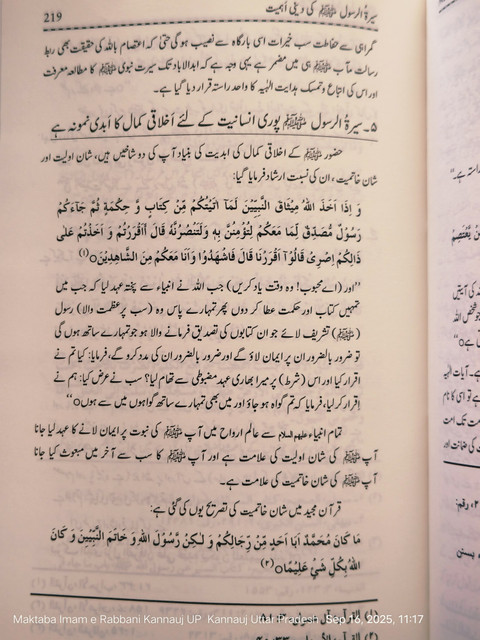 219
سیرۃ الرسول ﷺ کی دینی اہمیت
گمراہی سے حفاظت سب خیرات اسی بارگاہ سے نصیب ہو گی حتیٰ کہ اعتصام باللہ کی حقیقت بھی ربط
رسالت مآب ﷺ ہی میں مضمر ہے یہی وجہ ہے کہ ابدالآباد تک سیرت نبوی ﷺ کا مطالعہ معرفت
اور اس کی اتباع و تمسک ہدایت الٰہیہ کا واحد راستہ قرار دیا گیا ہے۔
۵۔ سیرۃ الرسول ﷺ پوری انسانیت کے لئے اَخلاقی کمال کا اَبدی نمونہ ہے
حضور ﷺ کے اخلاقی کمال کی ابدیت کی بنیاد آپ کی دو شاخیں ہیں، شان اولیت اور
شان خاتمیت، ان کی نسبت ارشاد فرمایا گیا:
وَ اِذَا اَخَذَ اللهُ مِيْثَاقَ النَّبِيّٖنَ لَمَآ اٰتَيْتُكُمْ مِّنْ كِتٰبٍ وَّ حِكْمَةٍ ثُمَّ جَآءَكُمْ
رَسُوْلٌ مُّصَدِّقٌ لِّمَا مَعَكُمْ لَتُؤْمِنُنَّ بِهٖ وَلَتَنْصُرُنَّهٗ قَالَ أَاَقْرَرْتُمْ وَ اَخَذْتُمْ عَلٰى
ذَالِكُمْ اِصْرِىْ قَالُوْٓا اَقْرَرْنَا قَالَ فَاشْهَدُوْا وَاَنَا مَعَكُمْ مِنَ الشَّاهِدِيْنَo(۱)
’’اور (اے محبوب! وہ وقت یاد کریں) جب اللہ نے انبیاء سے پختہ عہد لیا کہ جب میں
تمہیں کتاب اور حکمت عطا کر دوں پھر تمہارے پاس وہ (سب پر عظمت والا) رسول
(ﷺ) تشریف لائے جو ان کتابوں کی تصدیق فرمانے والا ہو جو تمہارے ساتھ ہوں گی
تو ضرور بالضرور ان پر ایمان لاؤ گے اور ضرور بالضرور ان کی مدد کرو گے، فرمایا: کیا تم نے
اقرار کیا اور اس (شرط) پر میرا بھاری عہد مضبوطی سے تھام لیا؟ سب نے عرض کیا: ہم نے
اِقرار کر لیا، فرمایا کہ تم گواہ ہو جاؤ اور میں بھی تمہارے ساتھ گواہوں میں سے ہوںo‘‘
تمام انبیاء علیہم السلام سے عالم ارواح میں آپ ﷺ کی نبوت پر ایمان لانے کا عہد لیا جانا
آپ ﷺ کی شان اولیت کی علامت ہے اور آپ ﷺ کا سب سے آخر میں مبعوث کیا جانا
آپ ﷺ کی شان خاتمیت کی علامت ہے۔
قرآن مجید میں شان خاتمیت کی تصریح یوں کی گئی ہے:
مَا كَانَ مُحَمَّدٌ اَبَا اَحَدٍ مِّنْ رِجَالِكُمْ وَ لٰـكِنْ رَّسُوْلَ اللهِ وَ خَاتَمَ النَّبِيّٖنَ وَ كَانَ
اللهُ بِكُلِّ شَيْءٍ عَلِيْمًاo(۲)
Maktaba Imam e Rabbani Kannauj UP Kannauj Uttar Pradesh Sep 16, 2025, 11:17